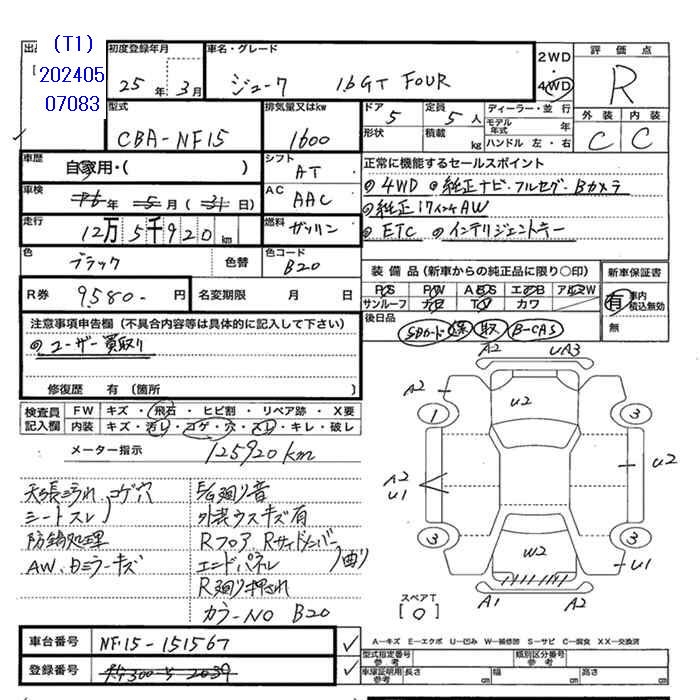 (T1)
202405
07083
初度登録年月
25 年 3 月
車名・グレード
ジューク 16GT FOUR
2WD
4WD
評価点
R
外装 内装
C C
型式
CBA-NF15
排気量又はkw
1600
ドア
5
定員
5 人
形状
積載
kg
ディーラー・並行
モデル年式
年
ハンドル 左・右
車歴
自家用・( )
シフト
AT
車検
年 5 月 (31 日)
AC
AAC
走行
12万5千920 km
燃料
ガソリン
色
ブラック
色替
色コード
B20
正常に機能するセールスポイント
◎4WD ◎純正ナビ・フルセグ・Bカメラ
◎純正17インチAW
◎ETC ◎インテリジェントキー
R券
9,580- 円
名変期限 月 日
装備品(新車からの純正品に限り○印)
P/S P/W ABS エアB アルミW
サンルーフ ナビ TV カワ
新車保証書
有
車内積込無効
無
後日品
SDカード 保 取 B-CAS
注意事項申告欄(不具合内容等は具体的に記入して下さい)
◎ユーザー買取り
修復歴 有 (箇所
検査員記入欄
FW キズ・飛石・ヒビ割・リペア跡・X要
内装 キズ・汚レ・コゲ・穴・スレ・キレ・破レ
メーター指示 125920km
コゲ穴
シートスレ
防錆処理
AW、カミラーキズ
廻り音
外装ウスキズ有
Rフロア Rサイドメンバー
エンドパネル 曲り
R廻り押され
カラーNO B20
A2 UA3
A2 U2
1 3
A2
U1
U2
3 3
W2
U1
A1 A2
スペアT
[0]
車台番号
NF15-151567
登録番号
A―キズ E―エクボ U―凹み W―補修跡 S―サビ C―腐食 XX―交換済
型式指定番号 参考
類別区分番号 参考
車庫証明用 参考
長さ cm
幅 cm
高さ cm